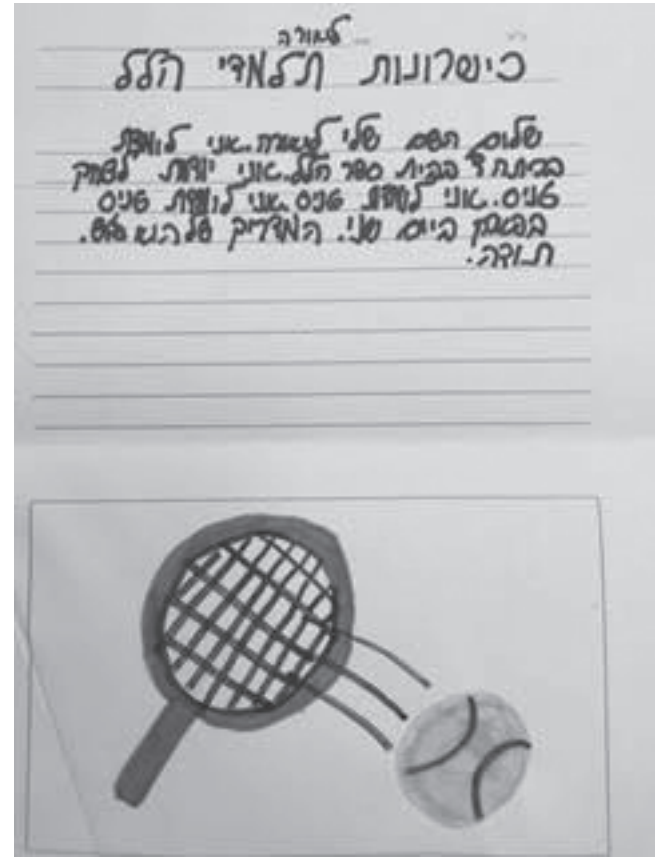 ליאורה
כישרונות תלמדי הלל
שלום השם שלי ליאורה. אני לומדת
בכיתה ד בבית ספר הלל. אני יודעת לשחק
טניס. אני לומדת טניס. אני לומדת טניס
ביום שני. המדריך שלי הוא
תודה.